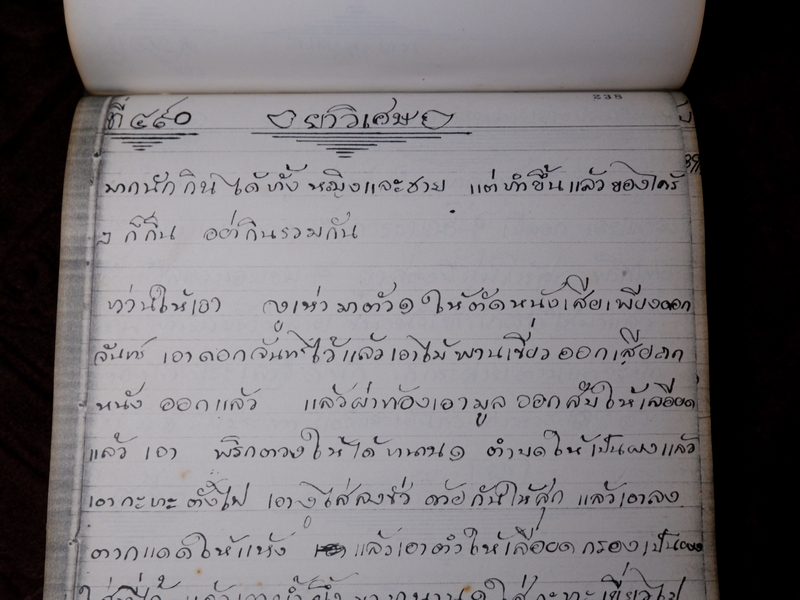 238
ที่ ๔๙๐ ยาวิเศษ
กินได้ทั้งหญิงและชาย แต่ทำขึ้นแล้วของใคร
ๆ ก็กิน อย่ากินรวมกัน
ท่านให้เอา งูเห่ามาตัว ๑ ให้ตัดหนังเสียเพียงดอก
จันทร์ เอาดอกจันทร์ไว้แล้วเอาไม้ ออกเสียลก
หนัง ออกแล้ว แล้วผ่าท้องเอามูลออก ให้เลือยด
แล้ว เอา พริก ให้ได้ทนาน ๑ ตำบดให้เป็นผงแล้ว
เอากะทะตั้งไฟ เอางูใส่ลงขั้ว ด้วยกันให้สุก แล้วเอาลง
ตากแดดให้แห้ง แล้วเอาตำให้เลือยด กรองเป็นผง
แล้วเอาน้ำผึ้ง ทนาน ๑ ใส่กะทะเขี้ยวไป